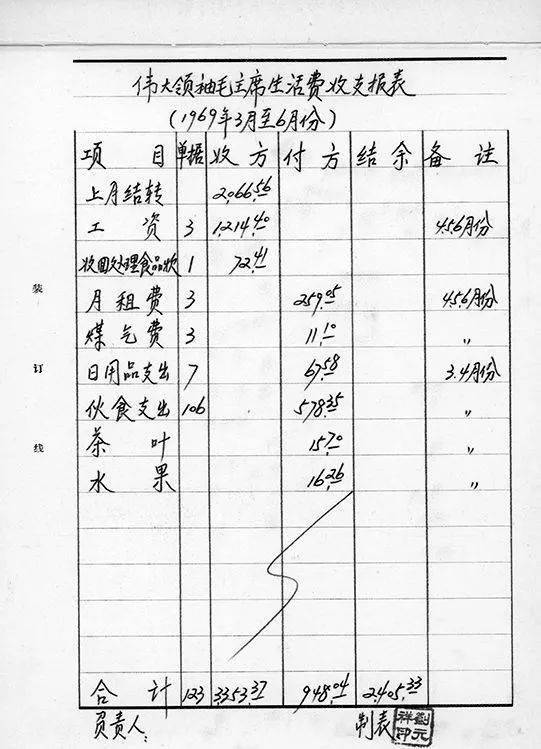 伟大领袖毛主席生活费收支报表
(1969年3月至6月份)
项目 单据 收方 付方 结余 备注
上月结转 2,066.56
工资 3 1,214.40 4.5.6月份
收回处理食品款 1 72.41
月租费 3 259.05 4.5.6月份
煤气费 3 11.10 〃
日用品支出 7 67.58 3.4月份
伙食支出 106 578.35 〃
茶叶 15.70 〃
水果 16.26 〃
合计 123 3,353.37 948.04 2,405.33
负责人: 制表 刘元祥印
装订线